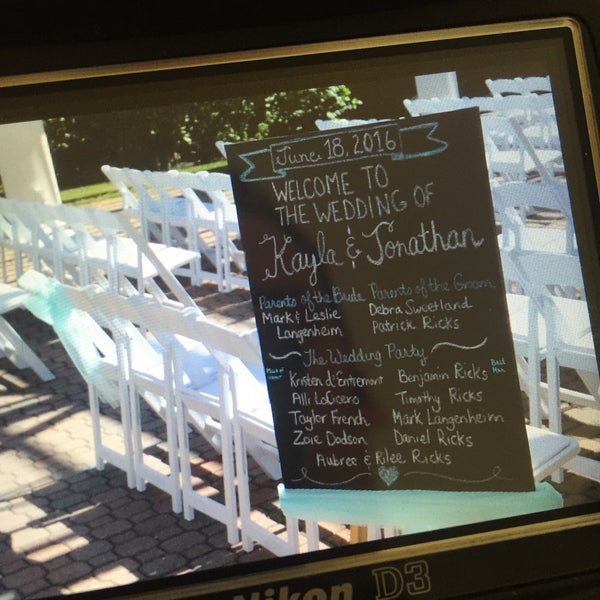 June 18, 2016
WELCOME TO
THE WEDDING OF
Kayla & Jonathan
Parents of the Bride Parents of the Groom
Mark & Leslie Debra Sweetland
Langenheim Patrick Ricks
The Wedding Party
Maid of Honor Kristen d'Entremont Benjamin Ricks Best Man
Alli LoCicero Timothy Ricks
Taylor French Mark Langenheim
Zoie Dodson Daniel Ricks
Aubree & Rilee Ricks
Nikon D3